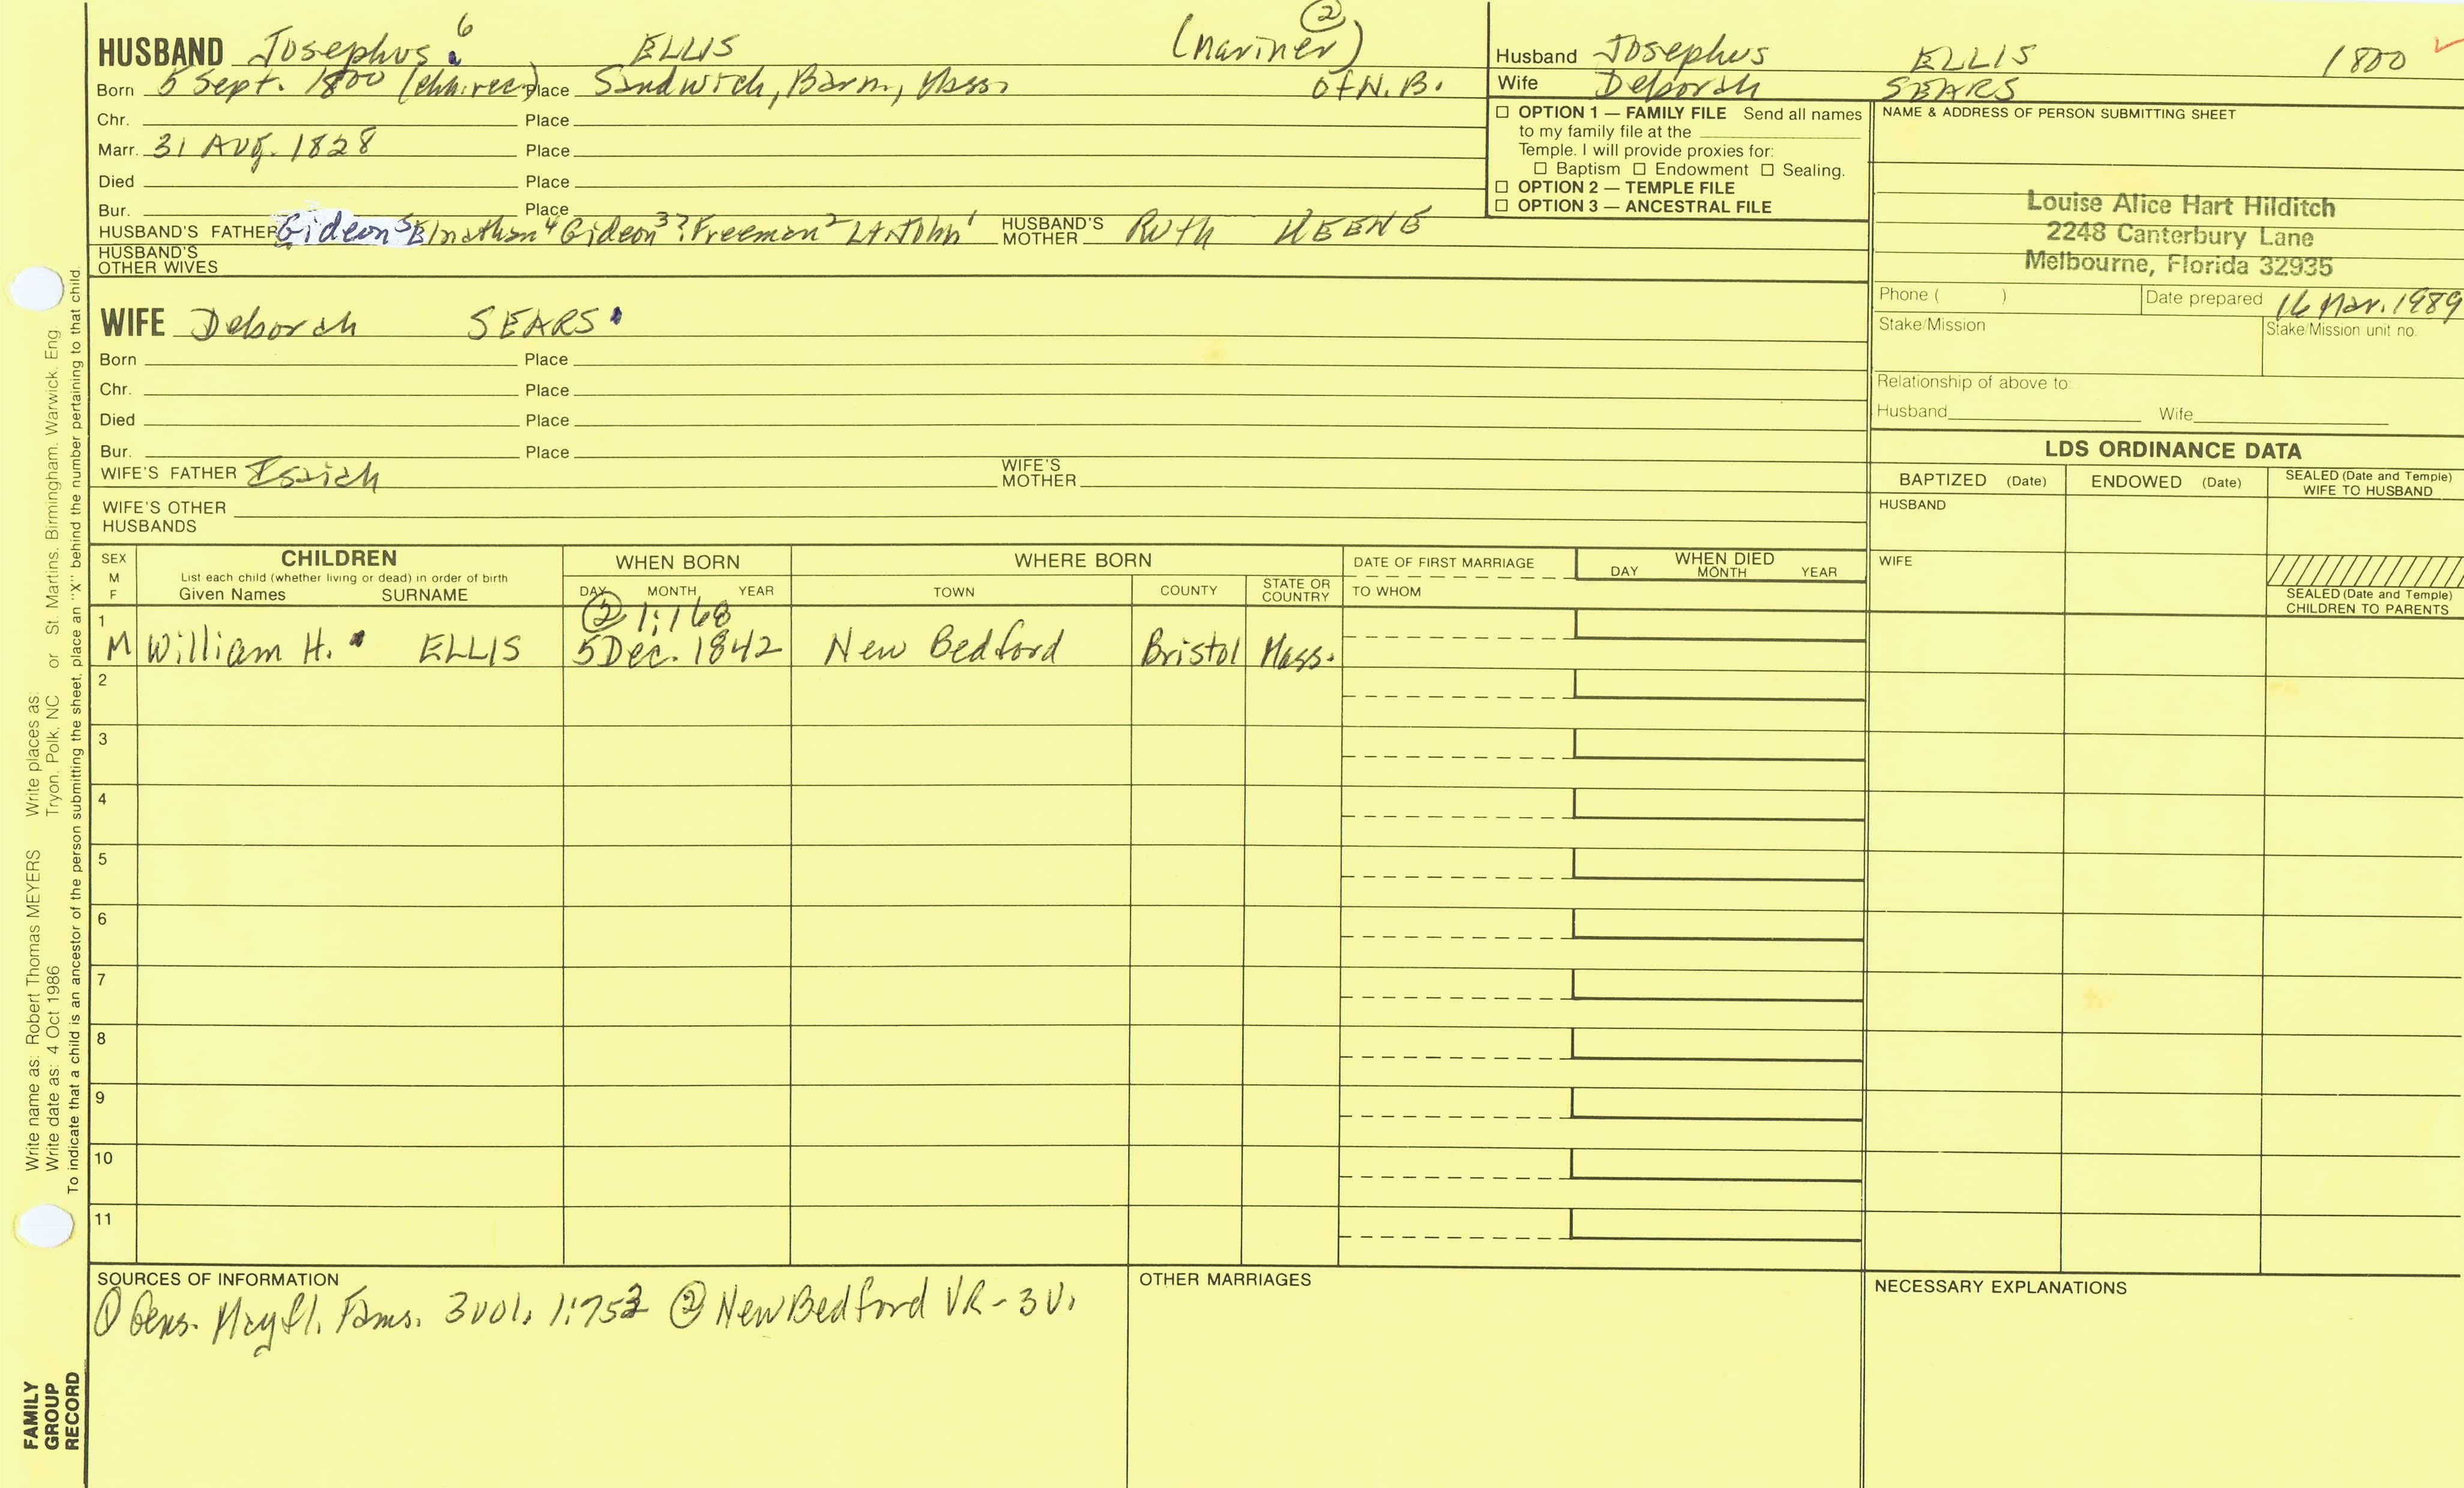 HUSBAND Josephus 6 ELLIS (Mariner) ②
Born 5 Sept. 1800 (chh. rec.) Place Sandwich, Barn., Mass. of N.B.
Chr. Place
Marr. 31 Aug. 1828 Place
Died Place
Bur. Place
HUSBAND'S FATHER Gideon 5 Elnathan 4 Gideon 3? Freeman 2 Lt. John 1 HUSBAND'S MOTHER Ruth KEENE
HUSBAND'S OTHER WIVES
Husband Josephus ELLIS 1800
Wife Deborah SEARS
☐ OPTION 1 — FAMILY FILE Send all names
to my family file at the
Temple. I will provide proxies for:
☐ Baptism ☐ Endowment ☐ Sealing.
☐ OPTION 2 — TEMPLE FILE
☐ OPTION 3 — ANCESTRAL FILE
NAME & ADDRESS OF PERSON SUBMITTING SHEET
Louise Alice Hart Hilditch
2248 Canterbury Lane
Melbourne, Florida 32935
Phone ( ) Date prepared 16 Mar. 1989
Stake/Mission Stake/Mission unit no.
Relationship of above to
Husband Wife
WIFE Deborah SEARS
Born Place
Chr. Place
Died Place
Bur. Place
WIFE'S FATHER Isaiah WIFE'S MOTHER
WIFE'S OTHER HUSBANDS
LDS ORDINANCE DATA
BAPTIZED (Date) ENDOWED (Date) SEALED (Date and Temple) WIFE TO HUSBAND
HUSBAND
WIFE
SEALED (Date and Temple) CHILDREN TO PARENTS
SEX M F
CHILDREN
List each child (whether living or dead) in order of birth
Given Names SURNAME
WHEN BORN
DAY MONTH YEAR
WHERE BORN
TOWN COUNTY STATE OR COUNTRY
DATE OF FIRST MARRIAGE
TO WHOM
WHEN DIED
DAY MONTH YEAR
1 ② 1:168
M William H. ELLIS 5 Dec. 1842 New Bedford Bristol Mass.
2
3
4
5
6
7
8
9
10
11
SOURCES OF INFORMATION
① Gens. Mayfl. Fams. 3 vol. 1:753 ② New Bedford VR - 3 V.
OTHER MARRIAGES
NECESSARY EXPLANATIONS
Write name as: Robert Thomas MEYERS Write places as: St. Martins, Birmingham, Warwick, Eng
Write date as: 4 Oct 1986 Tryon, Polk, NC or
To indicate that a child is an ancestor of the person submitting the sheet, place an "X" behind the number pertaining to that child.
FAMILY
GROUP
RECORD